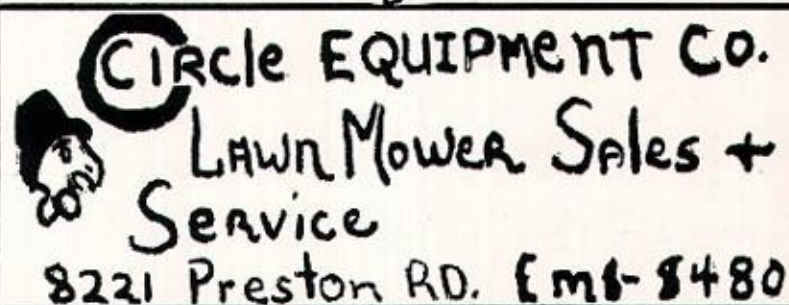 CIRcle EQUIPMenT CO.
LAWn MoweR SAles +
SeRvice
8221 Preston RD. Em8-8480